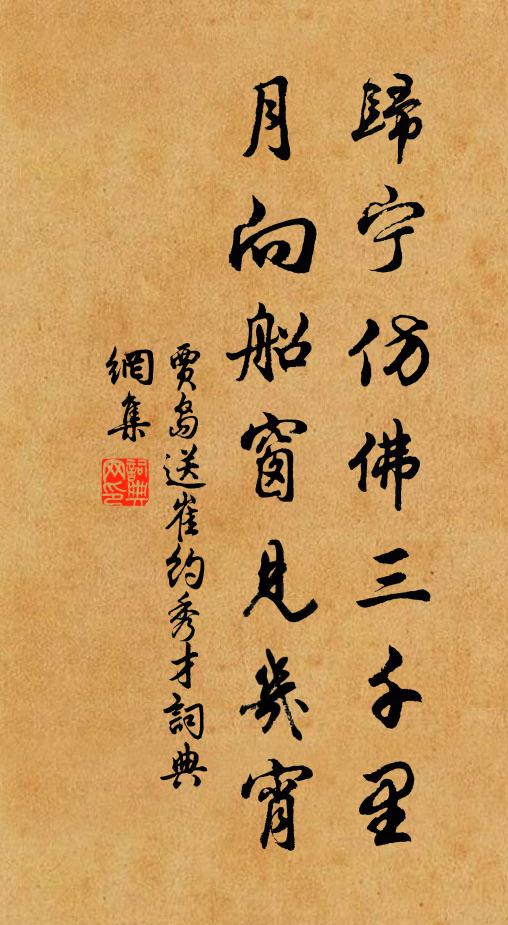 歸宁仿佛三千里
月向船窗見幾宵
賈島送崔約秀才詞典
網集
詞典
网印